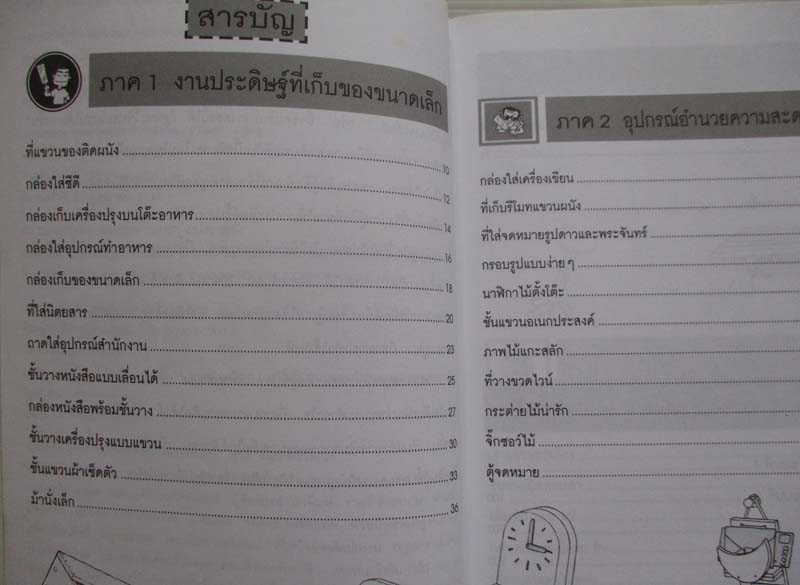 สารบัญ
ภาค 1 งานประดิษฐ์ที่เก็บของขนาดเล็ก
ที่แขวนของติดผนัง 10
กล่องใส่ซีดี 12
กล่องเก็บเครื่องปรุงบนโต๊ะอาหาร 14
กล่องใส่อุปกรณ์ทำอาหาร 16
กล่องเก็บของขนาดเล็ก 18
ที่ใส่นิตยสาร 20
ถาดใส่อุปกรณ์สำนักงาน 23
ชั้นวางหนังสือแบบเลื่อนได้ 25
กล่องหนังสือพร้อมชั้นวาง 27
ชั้นวางเครื่องปรุงแบบแขวน 30
ชั้นแขวนผ้าเช็ดตัว 33
ม้านั่งเล็ก 36
ภาค 2 อุปกรณ์อำนวยความสะด
กล่องใส่เครื่องเขียน
ที่เก็บรีโมทแขวนผนัง
ที่ใส่จดหมายรูปดาวและพระจันทร์
กรอบรูปแบบง่ายๆ
นาฬิกาไม้ตั้งโต๊ะ
ชั้นแขวนอเนกประสงค์
ภาพไม้แกะสลัก
ที่วางขวดไวน์
กระต่ายไม้น่ารัก
จิ๊กซอว์ไม้
ตู้จดหมาย